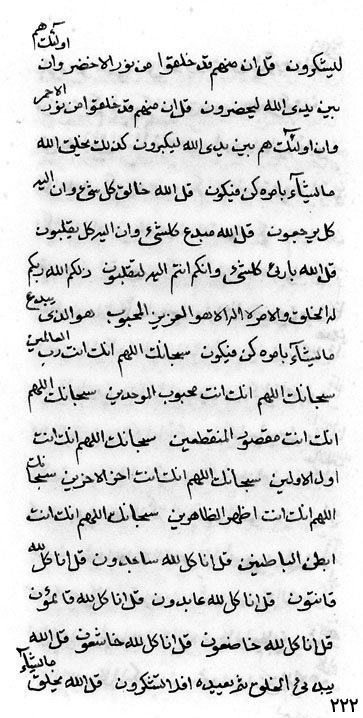 اولئك هم
ليشكرون قل ان منهم قد خلقوا من نور الاخضر وان
بين يدى الله ليحضرون قل ان منهم قد خلقوا من نور الاحمر
وان اولئك هم بين يدى الله ليكبرون كذلك يخلق الله
ما يشآء بامره كن فيكون قل الله خالق كل شئ وان اليه
كل يرجعون قل الله مبدع كلشئ وان اليه كل يقلبون
قل الله بارئ كلشئ وانكم انتم اليه لتقلبون ذلكم الله ربكم
له الخلق والامر لا اله الا هو العزيز المحبوب هو الذى يبدع
ما يشآء بامره كن فيكون سبحانك اللهم انك انت رب العالمين
سبحانك اللهم انك انت محبوب الموحدين سبحانك اللهم
انك انت مقصود المنقطعين سبحانك اللهم انك انت
اول الاولين سبحانك اللهم انك انت اخر الاخرين سبحانك
اللهم انك انت اظهر الظاهرين سبحانك اللهم انك انت
ابطن الباطنين قل انا كل لله ساجدون قل انا كل لله
قانتون قل انا كل لله عابدون قل انا كل لله قائمون
قل انا كل لله خاضعون قل انا كل لله خاشعون قل الله
يبدئ الخلق ثم يعيده افلا تشكرون قل الله يخلق ما يشآء
٢٢٢